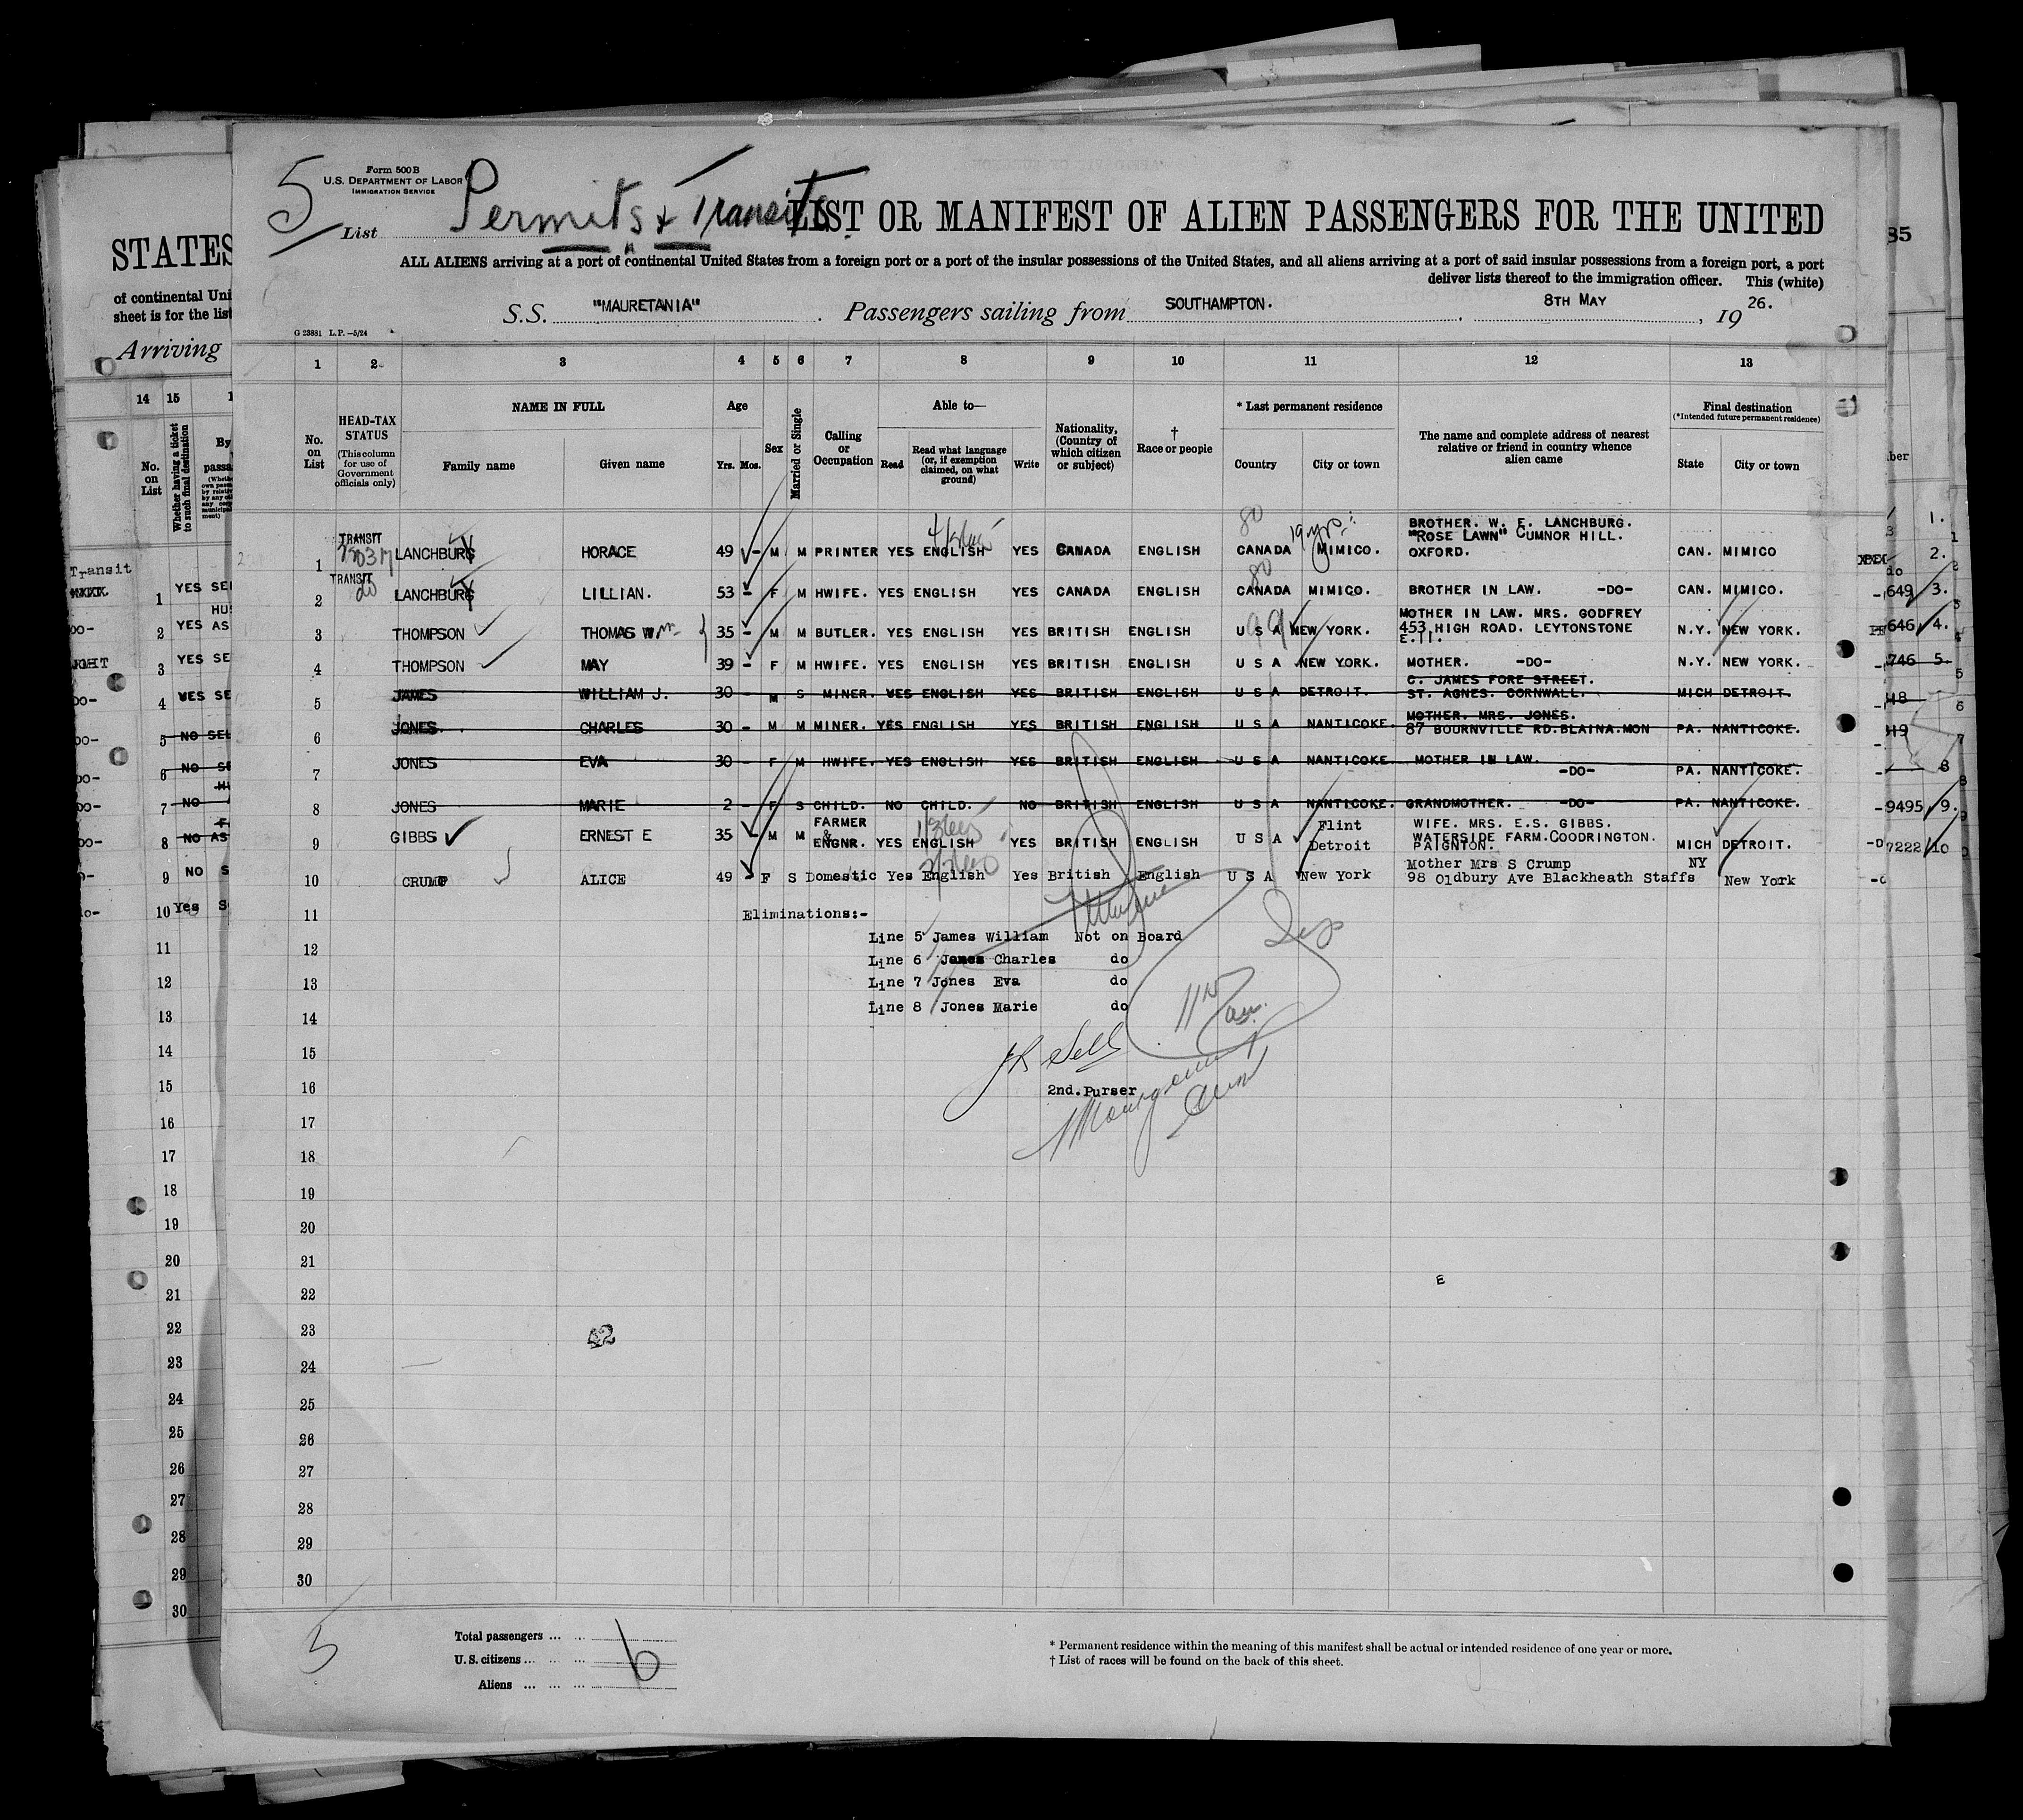 5
Form 500 B
U.S. DEPARTMENT OF LABOR
IMMIGRATION SERVICE
List Permits & Transits
LIST OR MANIFEST OF ALIEN PASSENGERS FOR THE UNITED
STATES
ALL ALIENS arriving at a port of continental United States from a foreign port or a port of the insular possessions of the United States, and all aliens arriving at a port of said insular possessions from a foreign port, a port
deliver lists thereof to the immigration officer. This (white)
of continental Uni
sheet is for the list
S.S. "MAURETANIA". Passengers sailing from SOUTHAMPTON. 8TH MAY, 19 26.
G 23881 L.P.—5/24
Arriving
1 2 3 4 5 6 7 8 9 10 11 12 13
No. on List
HEAD-TAX STATUS
(This column for use of Government officials only)
NAME IN FULL
Family name Given name
Age
Yrs. Mos.
Sex
Married or Single
Calling or Occupation
Able to—
Read Read what language (or, if exemption claimed, on what ground) Write
Nationality, (Country of which citizen or subject)
† Race or people
* Last permanent residence
Country City or town
The name and complete address of nearest relative or friend in country whence alien came
Final destination
(*Intended future permanent residence)
State City or town
BROTHER. W. E. LANCHBURG.
"ROSE LAWN" CUMNOR HILL.
1 TRANSIT LANCHBURG HORACE 49 - M M PRINTER YES ENGLISH YES CANADA ENGLISH CANADA MIMICO. OXFORD. CAN. MIMICO
2 TRANSIT do LANCHBURG LILLIAN. 53 - F M HWIFE. YES ENGLISH YES CANADA ENGLISH CANADA MIMICO. BROTHER IN LAW. -DO- CAN. MIMICO.
MOTHER IN LAW. MRS. GODFREY
3 THOMPSON THOMAS W. 35 - M M BUTLER. YES ENGLISH YES BRITISH ENGLISH U S A NEW YORK. 453 HIGH ROAD. LEYTONSTONE N.Y. NEW YORK.
E.11.
4 THOMPSON MAY 39 - F M HWIFE. YES ENGLISH YES BRITISH ENGLISH U S A NEW YORK. MOTHER. -DO- N.Y. NEW YORK.
C. JAMES FORE STREET.
5 JAMES WILLIAM J. 30 - M S MINER. YES ENGLISH YES BRITISH ENGLISH U S A DETROIT. ST. AGNES. CORNWALL. MICH DETROIT.
MOTHER. MRS. JONES.
6 JONES. CHARLES 30 - M M MINER. YES ENGLISH YES BRITISH ENGLISH U S A NANTICOKE. 87 BOURNVILLE RD.BLAINA.MON PA. NANTICOKE.
7 JONES EVA 30 - F M HWIFE. YES ENGLISH YES BRITISH ENGLISH U S A NANTICOKE MOTHER IN LAW. -DO- PA. NANTICOKE.
8 JONES MARIE 2 - F S CHILD. NO CHILD. NO BRITISH ENGLISH U S A NANTICOKE. GRANDMOTHER. -DO- PA. NANTICOKE.
FARMER & Flint WIFE. MRS. E.S. GIBBS.
9 GIBBS ERNEST E 35 - M M ENGNR. YES ENGLISH YES BRITISH ENGLISH U S A Detroit WATERSIDE FARM.COODRINGTON. MICH DETROIT.
PAIGNTON.
Mother Mrs S Crump NY
10 CRUMP ALICE 49 - F S Domestic Yes English Yes British English U S A New York 98 Oldbury Ave Blackheath Staffs New York
11 Eliminations:-
12 Line 5 James William Not on Board
Line 6 James Charles do
13 Line 7 Jones Eva do
14 Line 8 Jones Marie do
15
16 2nd.Purser
17
18
19
20
21
22 E
23 42
24
25
26
27
28
29
30
5
Total passengers ... ...
U. S. citizens ... ... ... 6
Aliens ... ... ...
* Permanent residence within the meaning of this manifest shall be actual or intended residence of one year or more.
† List of races will be found on the back of this sheet.